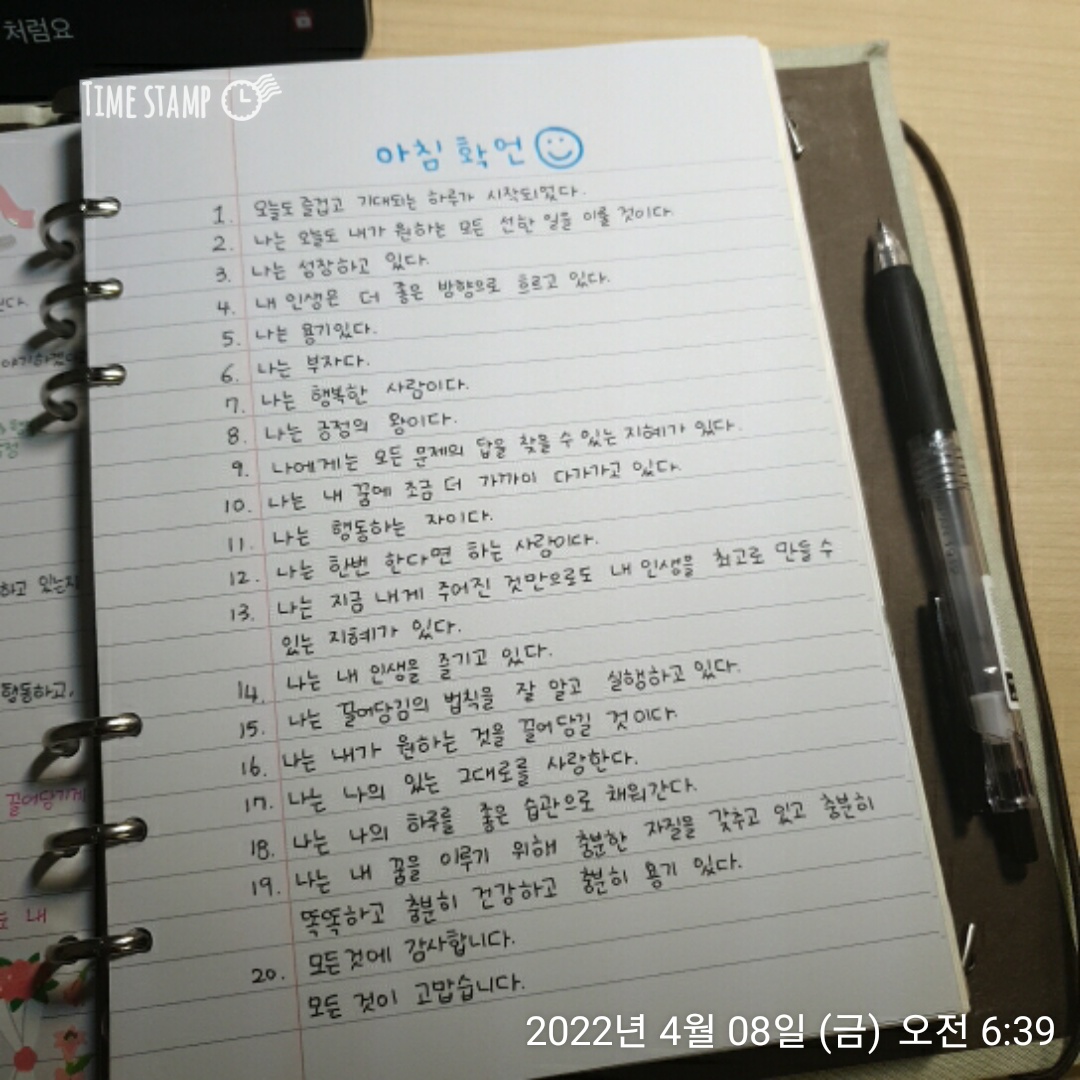 처럼요
TIME STAMP
아침 확언
1. 오늘도 즐겁고 기대되는 하루가 시작되었다.
2. 나는 오늘도 내가 원하는 모든 선한 일을 이룰 것이다.
3. 나는 성장하고 있다.
4. 내 인생은 더 좋은 방향으로 흐르고 있다.
5. 나는 용기있다.
6. 나는 부자다.
7. 나는 행복한 사람이다.
8. 나는 긍정의 왕이다.
9. 나에게는 모든 문제의 답을 찾을 수 있는 지혜가 있다.
10. 나는 내 꿈에 조금 더 가까이 다가가고 있다.
11. 나는 행동하는 자이다.
12. 나는 한번 한다면 하는 사람이다.
13. 나는 지금 내게 주어진 것만으로도 내 인생을 최고로 만들 수
있는 지혜가 있다.
14. 나는 내 인생을 즐기고 있다.
15. 나는 끌어당김의 법칙을 잘 알고 실행하고 있다.
16. 나는 내가 원하는 것을 끌어당길 것이다.
17. 나는 나의 있는 그대로를 사랑한다.
18. 나는 나의 하루를 좋은 습관으로 채워간다.
19. 나는 내 꿈을 이루기 위해 충분한 자질을 갖추고 있고 충분히
똑똑하고 충분히 건강하고 충분히 용기 있다.
20. 모든것에 감사합니다.
모든 것이 고맙습니다.
하고 있는지
행동하고,
끌어당기게
내
2022년 4월 08일 (금) 오전 6:39